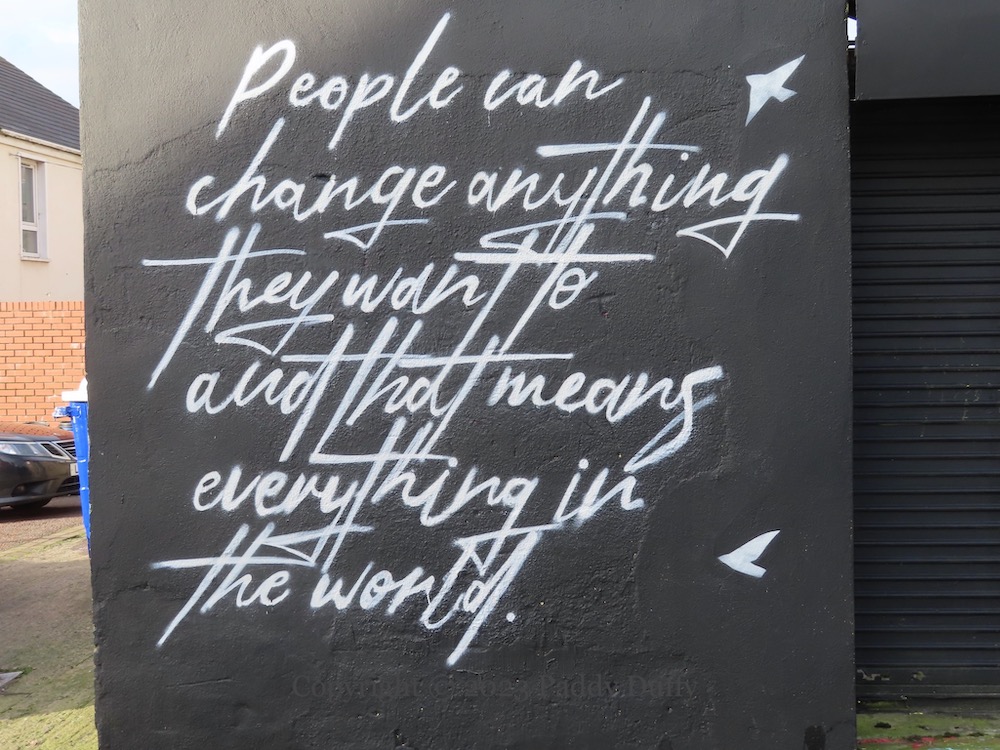 People can
change anything
they want to
and that means
everything in
the world.
Paddy Duffy